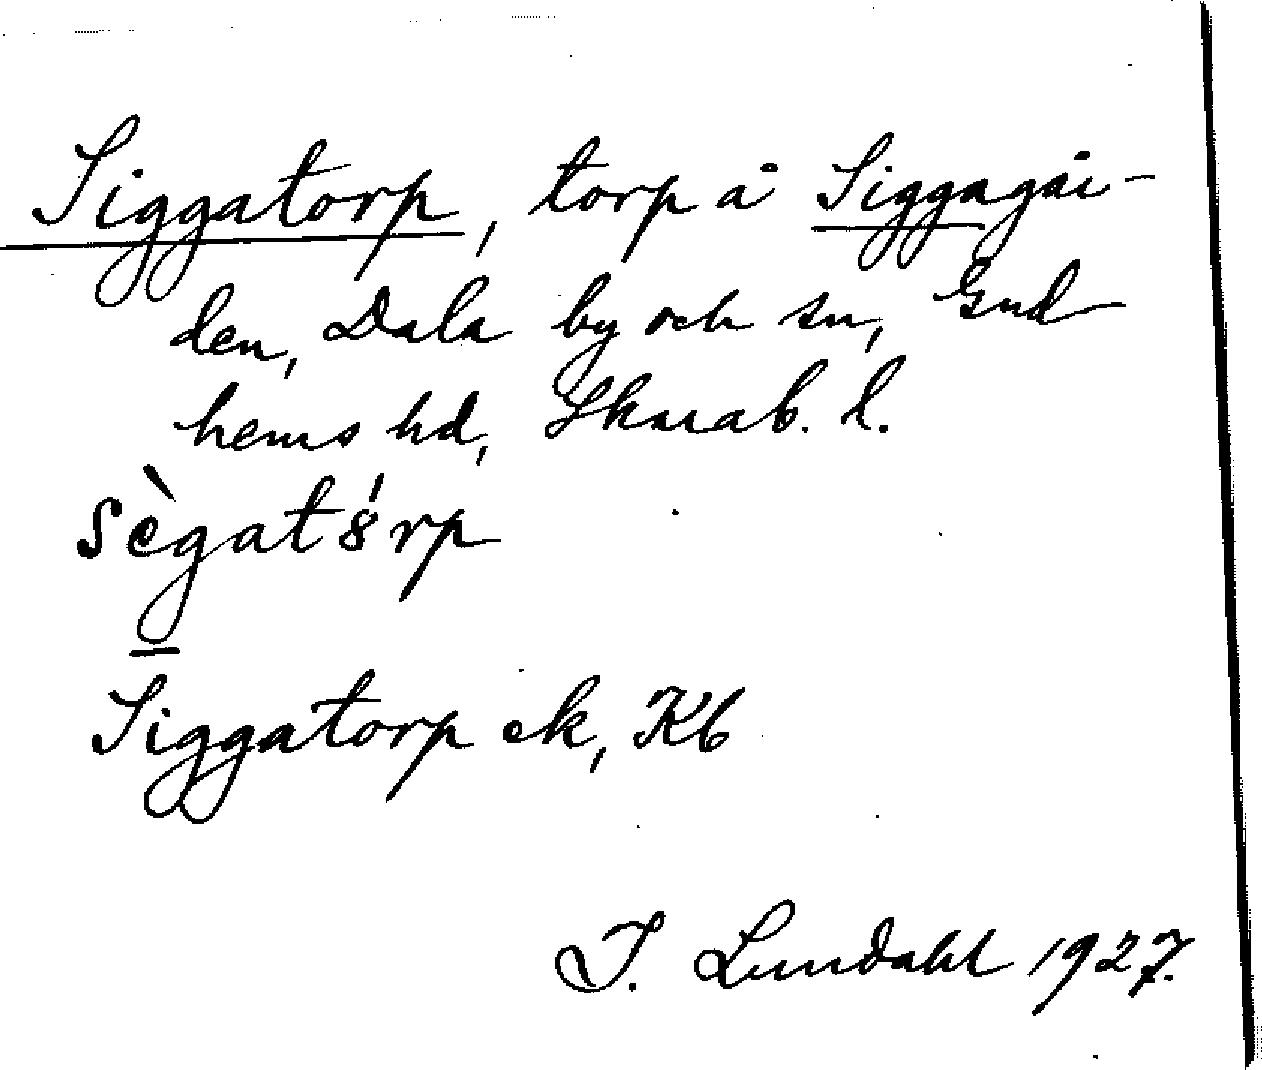 Siggatorp, torp å Siggagår-
den, Dala by och sn, Gud
hems hd, Skarab. l.
sègat8́rp
Siggatorp ek, Kb
I. Lundahl 1927.